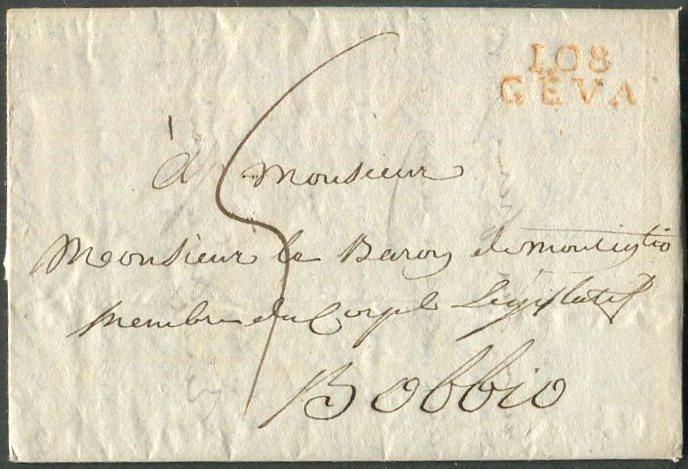 108
GÊVA
à Monsieur
Monsieur le Baron de
membre du Corps Législatif
Bobbio
5